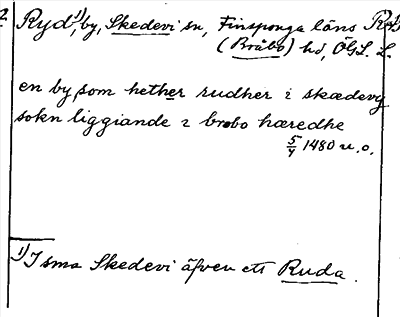 Ryd,¹⁾ by, Skedevi sn, Finsponga läns
(Bråbo) hd, ÖGL. L.
en by, som hether rudher i skædevy
sokn liggiande i brobo hæredhe
5/4 1480 u.o.
¹⁾I sma Skedevi äfven ett Ruda.